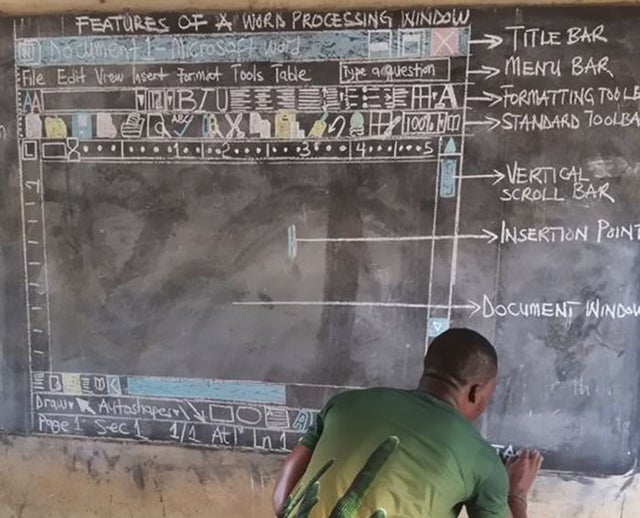 FEATURES OF A WORD PROCESSING WINDOW
Document 1 - Microsoft Word
TITLE BAR
File Edit View Insert Format Tools Table
Type a question
MENU BAR
AA
B I U
A
FORMATTING TOOLB
100%
STANDARD TOOLBA
1 2 3 4 5
VERTICAL
SCROLL BAR
INSERTION POINT
DOCUMENT WINDOW
Draw Autoshapes
A
Page 1 Sec 1 1/1 At 1" Ln 1
TA